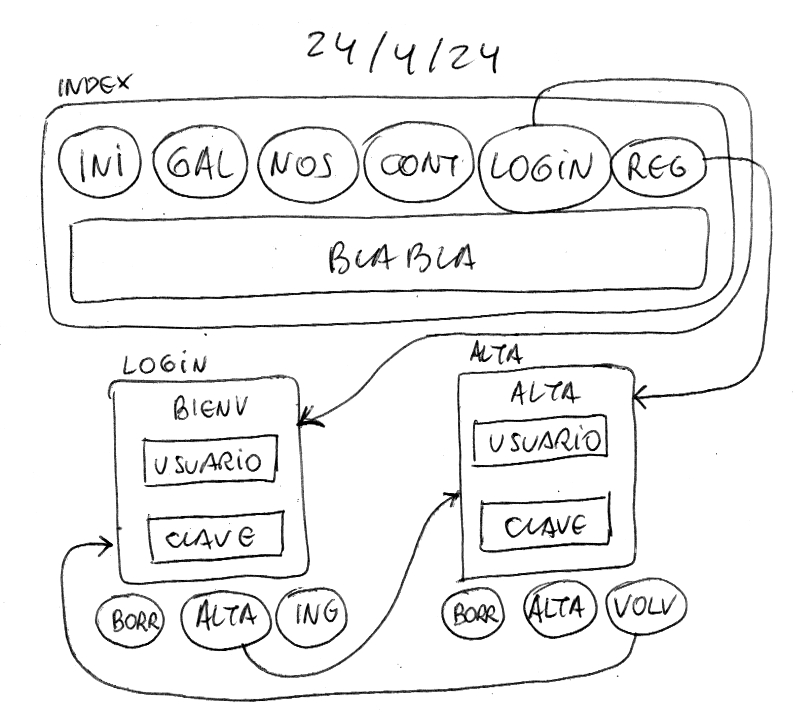 24/4/24
INDEX
INI GAL NOS CONT LOGIN REG
BLA BLA
LOGIN
BIENV
USUARIO
CLAVE
BORR ALTA ING
ALTA
ALTA
USUARIO
CLAVE
BORR ALTA VOLV